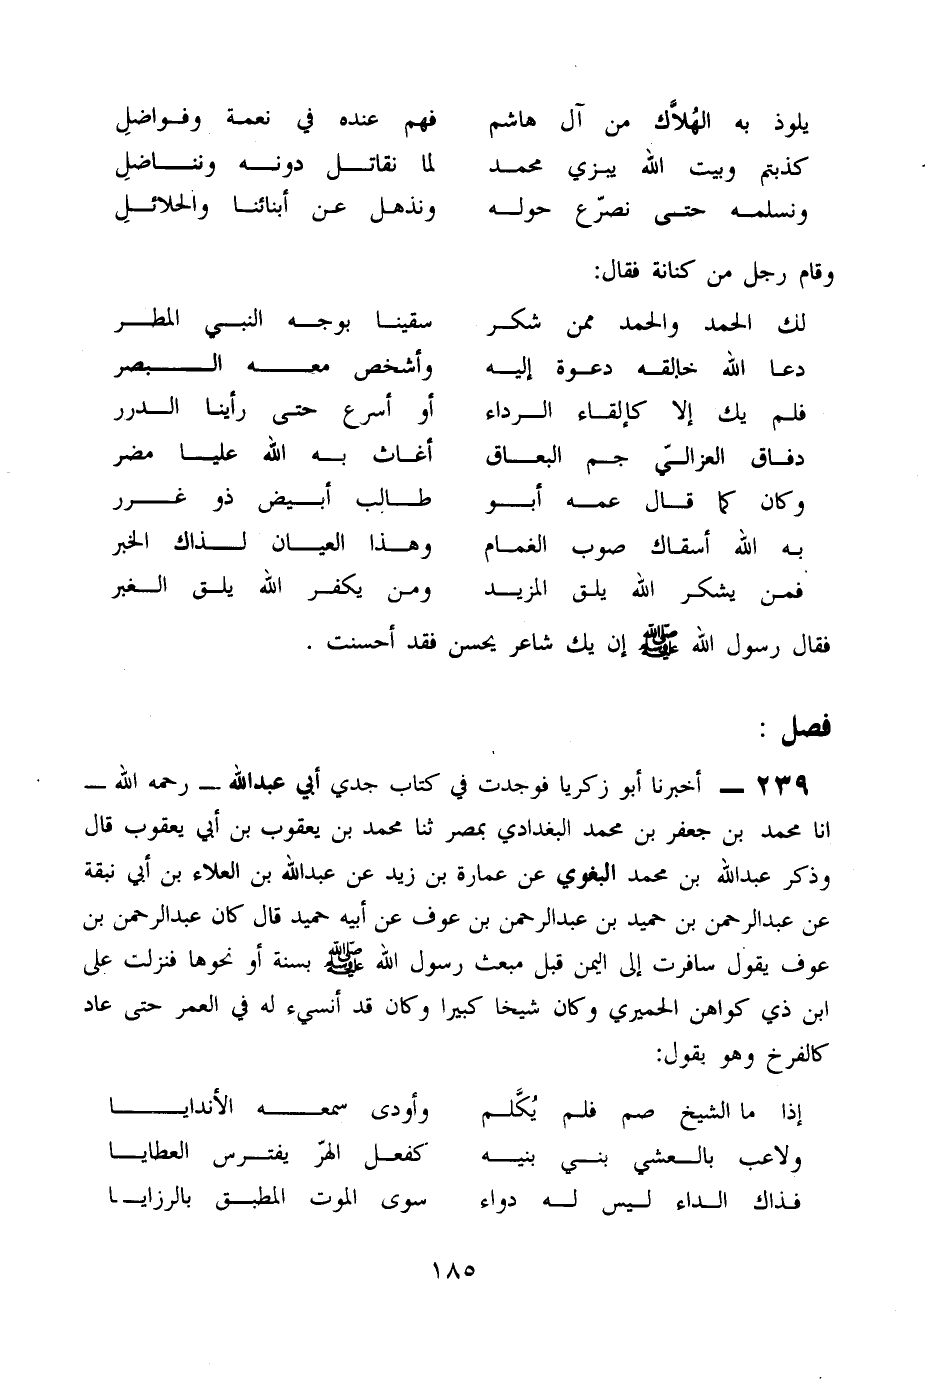 يلوذ به الهُلاَّك من آل هاشم فهم عنده في نعمة وفواضلِ
كذبتم وبيت الله يبزي محمد لما نقاتل دونه ونناضلِ
ونسلمه حتى نصرّع حوله ونذهل عن أبنائنا والحلائلِ
وقام رجل من كنانة فقال:
لك الحمد والحمد ممن شكر سقينا بوجه النبي المطر
دعا الله خالقه دعوة إليه وأشخص معه البصر
فلم يك إلا كإلقاء الرداء أو أسرع حتى رأينا الدرر
دفاق العزاليّ جم البعاق أغاث به الله عليا مضر
وكان كما قال عمه أبو طالب أبيض ذو غرر
به الله أسقاك صوب الغمام وهذا العيان لذاك الخبر
فمن يشكر الله يلق المزيد ومن يكفر الله يلق الغبر
فقال رسول الله ﷺ إن يك شاعر يحسن فقد أحسنت .
فصل :
٢٣٩ ــ أخبرنا أبو زكريا فوجدت في كتاب جدي أبي عبدالله ــ رحمه الله ــ
انا محمد بن جعفر بن محمد البغدادي بمصر ثنا محمد بن يعقوب بن أبي يعقوب قال
وذكر عبدالله بن محمد البغوي عن عمارة بن زيد عن عبدالله بن العلاء بن أبي نبقة
عن عبدالرحمن بن حميد بن عبدالرحمن بن عوف عن أبيه حميد قال كان عبدالرحمن بن
عوف يقول سافرت إلى اليمن قبل مبعث رسول الله ﷺ بسنة أو نحوها فنزلت على
ابن ذي كواهن الحميري وكان شيخا كبيرا وكان قد أنسيء له في العمر حتى عاد
كالفرخ وهو يقول:
إذا ما الشيخ صم فلم يُكَّلم وأودى سمعه الأندايا
ولاعب بالعشي بني بنيه كفعل الهرّ يفترس العطايا
فذاك الداء ليس له دواء سوى الموت المطبق بالرزايا
١٨٥